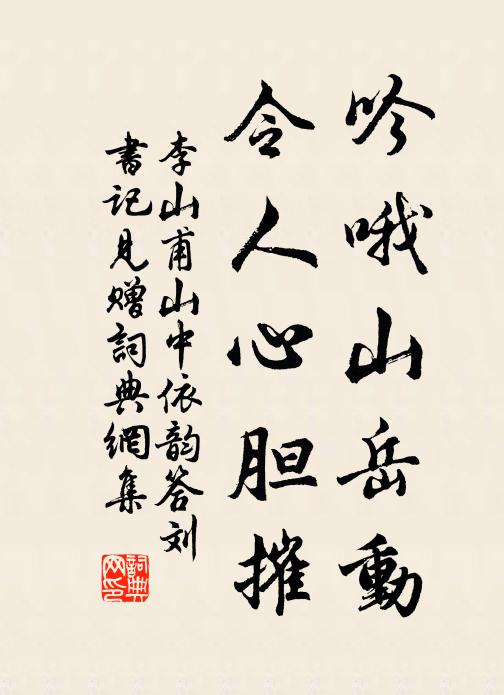 吟哦山岳動
令人心胆摧
李山甫山中依韵答刘
書記見贈詞典網集
詞典网印